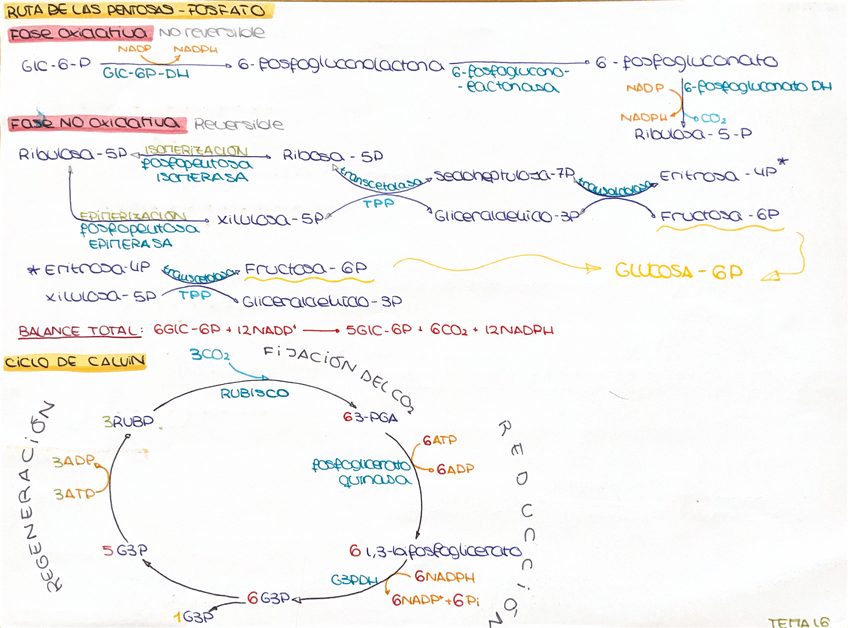 RUTA DE LAS PENTOSAS-FOSFATO
FASE OXIDATIVA NO REVERSIBLE
NADP NADPH
Glc-6-P GlC-6P-DH 6-fosfogluconolactona 6-fosfogluconolactonasa 6-fosfogluconato
NADP 6-fosfogluconato DH
NADPH CO2
Ribulosa-5-P
FASE NO OXIDATIVA Reversible
Ribulosa-5P ISOMERIZACIÓN Ribosa-5P
fosfopentosa
ISOMERASA
transcetolasa Sedoheptulosa-7P transaldolasa Eritrosa-4P*
TPP
EPIMERIZACIÓN xilulosa-5P Gliceraldehido-3P Fructosa-6P
fosfopentosa
EPIMERASA
*Eritrosa-4P transcetolasa Fructosa-6P GLUCOSA-6P
xilulosa-5P TPP Gliceraldehido-3P
BALANCE TOTAL: 6GlC-6P + 12NADP+ 5GlC-6P + 6CO2 + 12NADPH
CICLO DE CALVIN
3CO2 FIJACIÓN DEL CO2
RUBISCO
3RUBP 6 3-PGA
6ATP
3ADP fosfoglicerato 6ADP
quinasa
3ATP
REGENERACIÓN
REDUCCIÓN
5 G3P 6 1,3-bifosfoglicerato
G3PDH 6NADPH
6G3P 6NADP+ + 6Pi
1G3P
TEMA 16